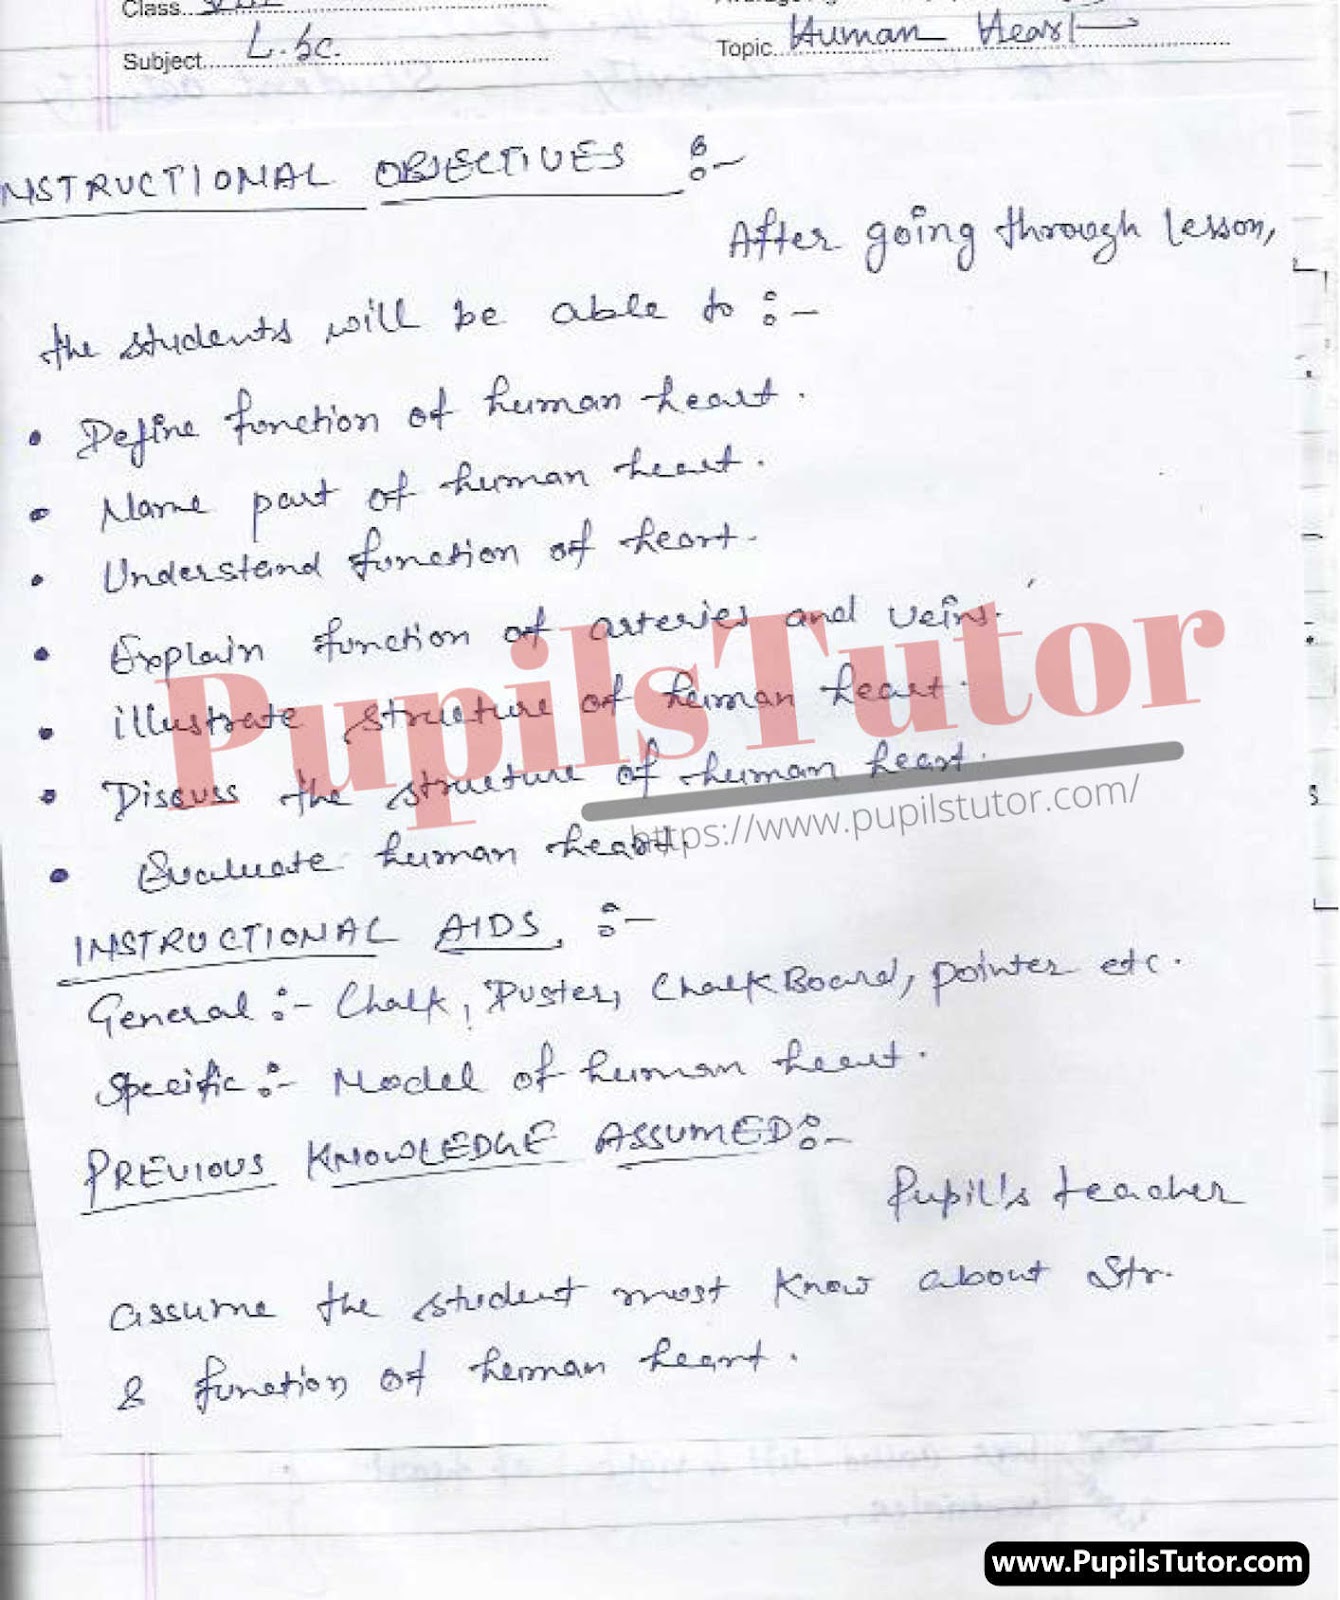 Class..
Subject.... L.Sc.
Topic.. Human Heart
INSTRUCTIONAL OBJECTIVES :-
After going through lesson,
the students will be able to :-
• Define function of human heart.
• Name part of human heart.
• Understand function of heart.
• Explain function of arteries and veins.
• illustrate structure of human heart.
• Discuss the structure of human heart.
• Evaluate human heart.
PupilsTutor
https://www.pupilstutor.com/
INSTRUCTIONAL AIDS :-
General :- Chalk, Duster, Chalk Board, pointer etc.
Specific :- Model of human heart.
PREVIOUS KNOWLEDGE ASSUMED :-
Pupil's teacher
assume the student most know about Str.
& function of human heart.
www.PupilsTutor.com